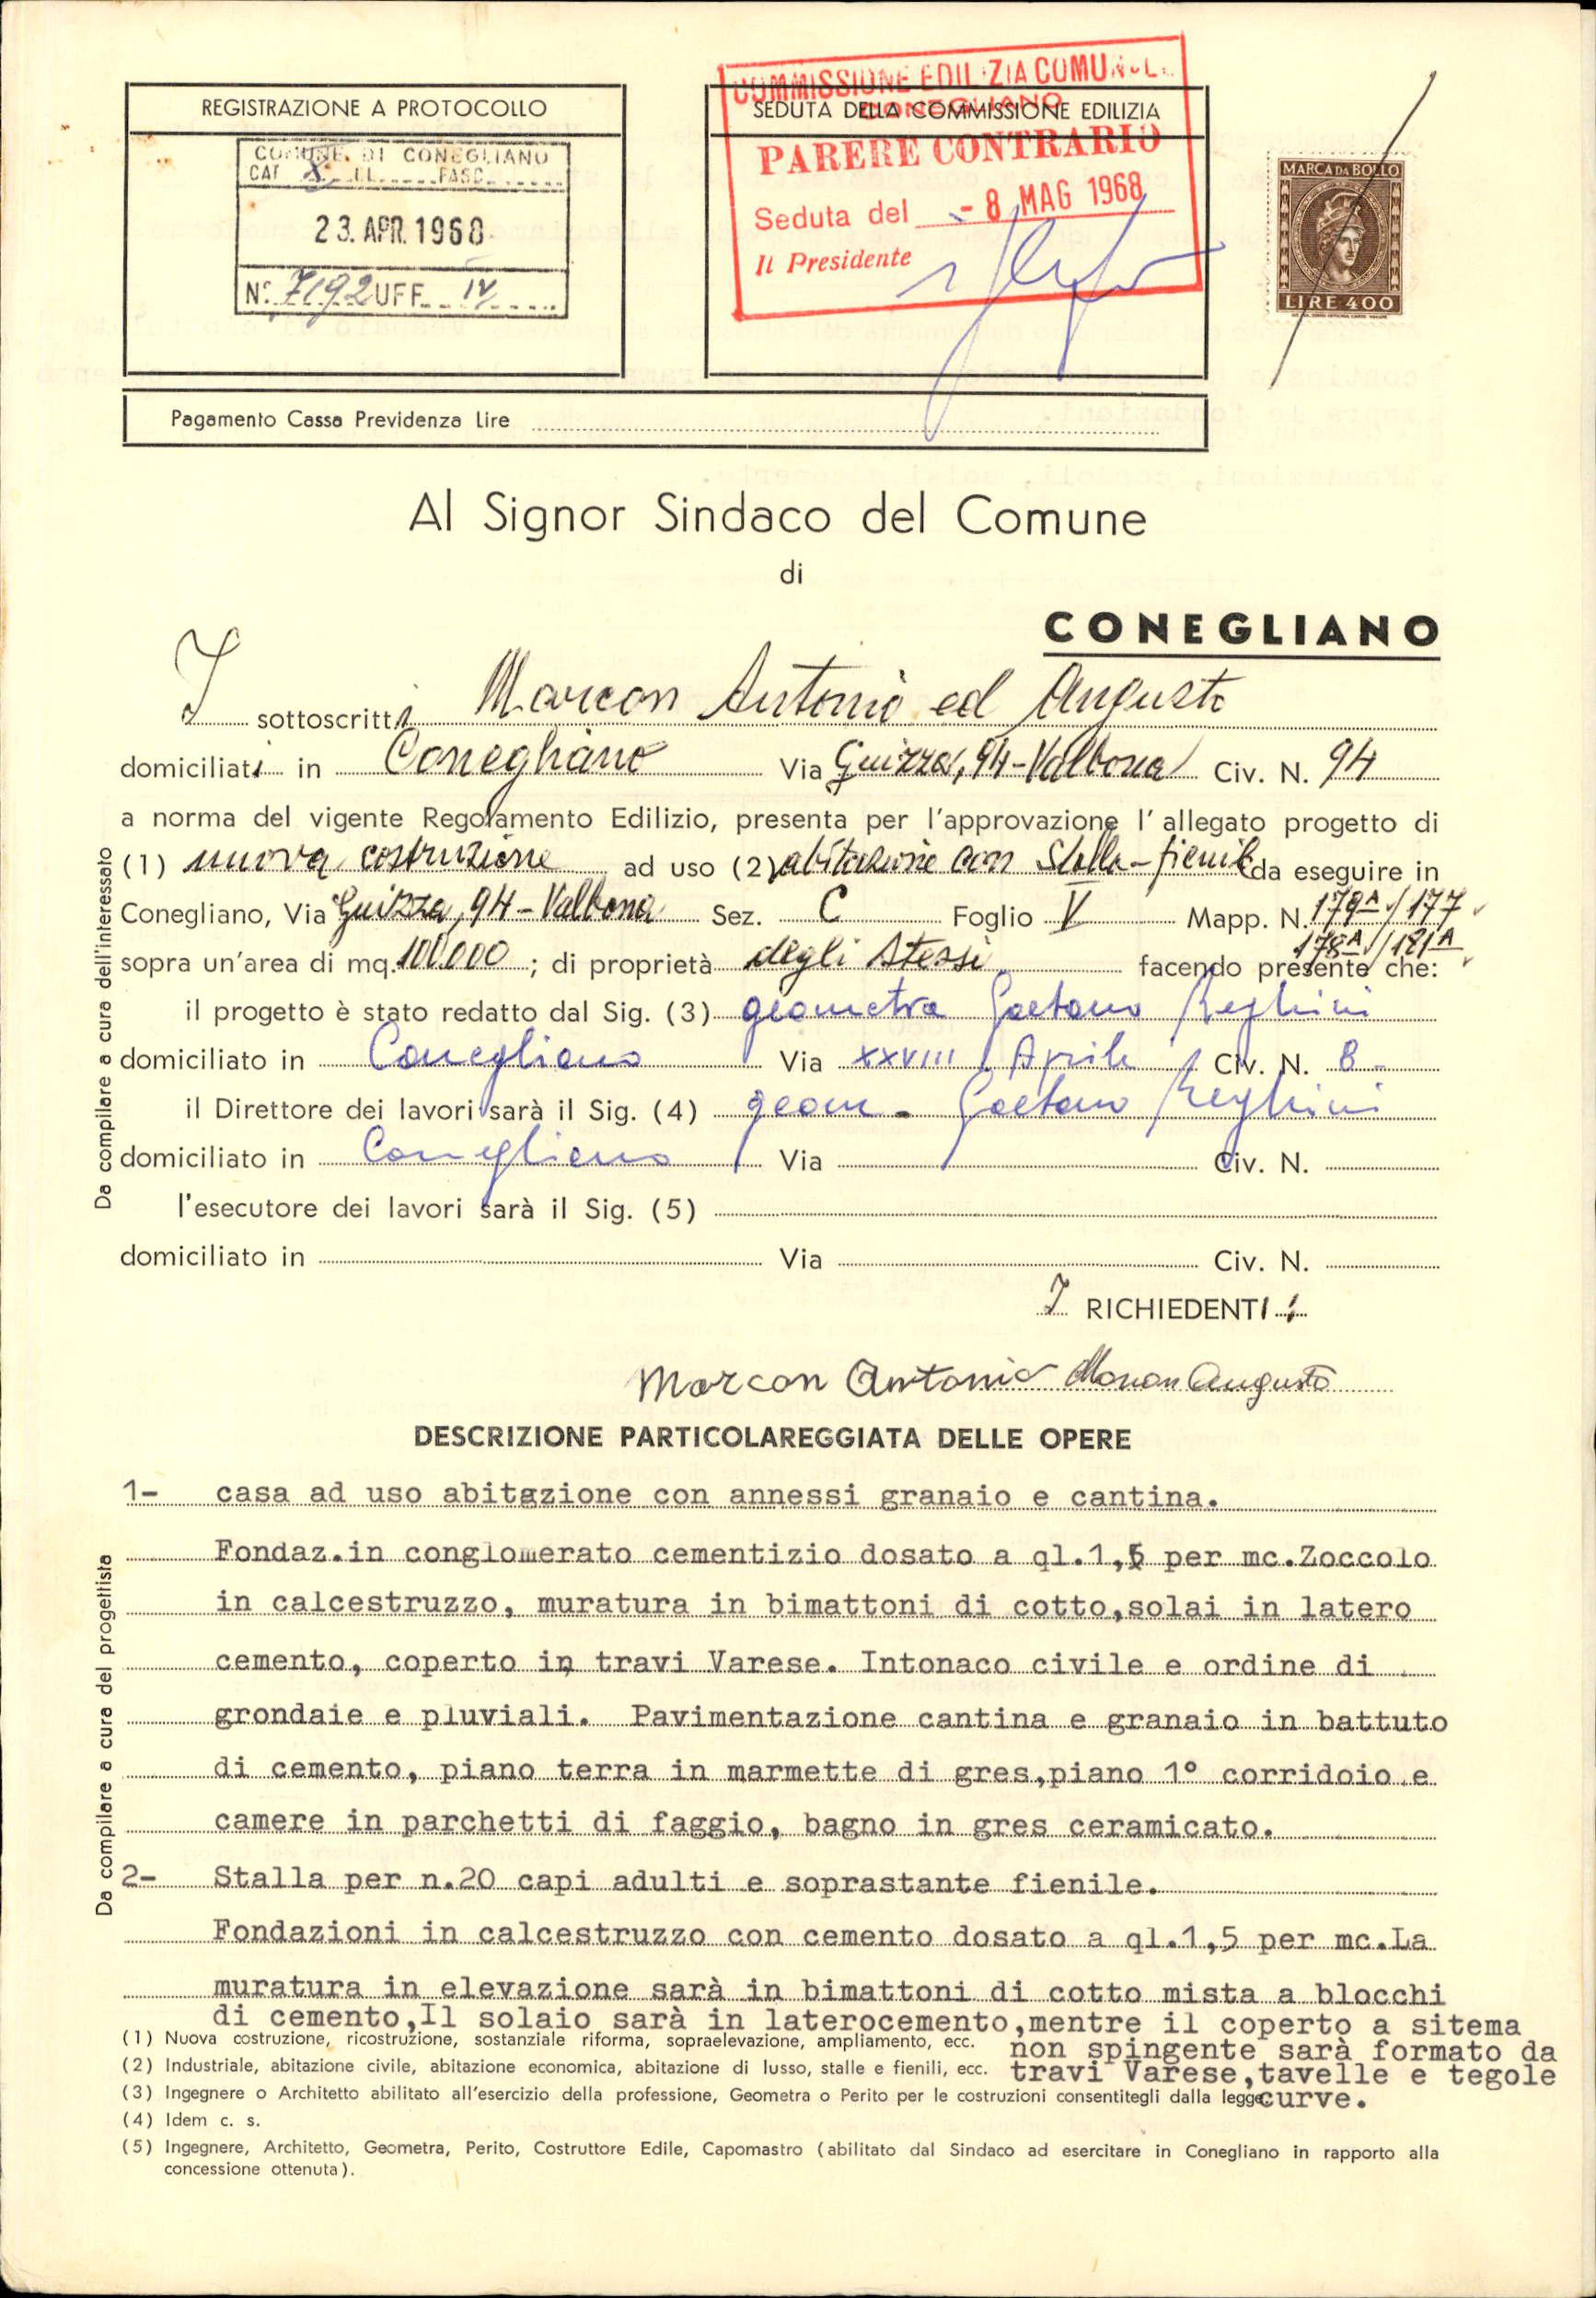 REGISTRAZIONE A PROTOCOLLO
COMUNE DI CONEGLIANO
CAT. X CL. FASC.
23. APR. 1968
N. 7192 UFF. IV
COMMISSIONE EDILIZIA COMUNALE
CONEGLIANO
SEDUTA DELLA COMMISSIONE EDILIZIA
PARERE CONTRARIO
Seduta del - 8 MAG 1968
Il Presidente
MARCA DA BOLLO
LIRE 400
Pagamento Cassa Previdenza Lire
Al Signor Sindaco del Comune
di
CONEGLIANO
I sottoscritti Marcon Antonio ed Augusto
domiciliati in Conegliano Via Guizza, 94 - Valbona Civ. N. 94
a norma del vigente Regolamento Edilizio, presenta per l'approvazione l'allegato progetto di
(1) nuova costruzione ad uso (2) abitazione con Stalla - fienile da eseguire in
Conegliano, Via Guizza, 94 - Valbona Sez. C Foglio V Mapp. N. 179A / 177
178A / 181A
sopra un'area di mq. 100.000 ; di proprietà degli Stessi facendo presente che:
il progetto è stato redatto dal Sig. (3) geometra Gaetano Reghini
domiciliato in Conegliano Via XXVIII Aprile Civ. N. 8 -
il Direttore dei lavori sarà il Sig. (4) geom. Gaetano Reghini
domiciliato in Conegliano Via Civ. N.
l'esecutore dei lavori sarà il Sig. (5)
domiciliato in Via Civ. N.
I RICHIEDENTI :
Marcon Antonio Marcon Augusto
Da compilare a cura dell'interessato
DESCRIZIONE PARTICOLAREGGIATA DELLE OPERE
1- casa ad uso abitazione con annessi granaio e cantina.
Fondaz.in conglomerato cementizio dosato a ql.1,5 per mc.Zoccolo
in calcestruzzo, muratura in bimattoni di cotto,solai in latero
cemento, coperto in travi Varese. Intonaco civile e ordine di
grondaie e pluviali. Pavimentazione cantina e granaio in battuto
di cemento, piano terra in marmette di gres,piano 1° corridoio e
camere in parchetti di faggio, bagno in gres ceramicato.
2- Stalla per n.20 capi adulti e soprastante fienile.
Fondazioni in calcestruzzo con cemento dosato a ql.1,5 per mc.La
muratura in elevazione sarà in bimattoni di cotto mista a blocchi
di cemento,Il solaio sarà in laterocemento,mentre il coperto a sitema
non spingente sarà formato da
travi Varese,tavelle e tegole
curve.
Da compilare a cura del progettista
(1) Nuova costruzione, ricostruzione, sostanziale riforma, sopraelevazione, ampliamento, ecc.
(2) Industriale, abitazione civile, abitazione economica, abitazione di lusso, stalle e fienili, ecc.
(3) Ingegnere o Architetto abilitato all'esercizio della professione, Geometra o Perito per le costruzioni consentitegli dalla legge
(4) Idem c. s.
(5) Ingegnere, Architetto, Geometra, Perito, Costruttore Edile, Capomastro (abilitato dal Sindaco ad esercitare in Conegliano in rapporto alla
concessione ottenuta).